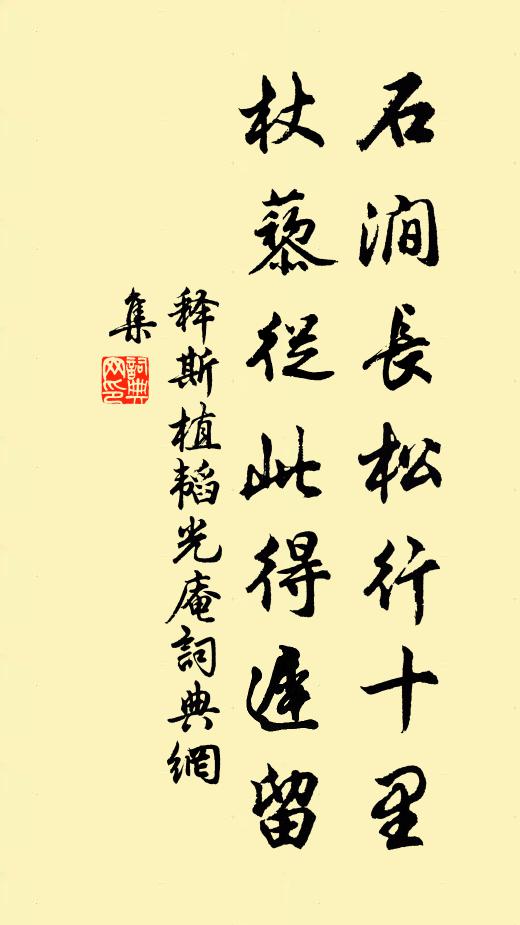 石澗長松行十里
杖藜從此得遲留
释斯植韬光庵詞典網
集
詞典
网印